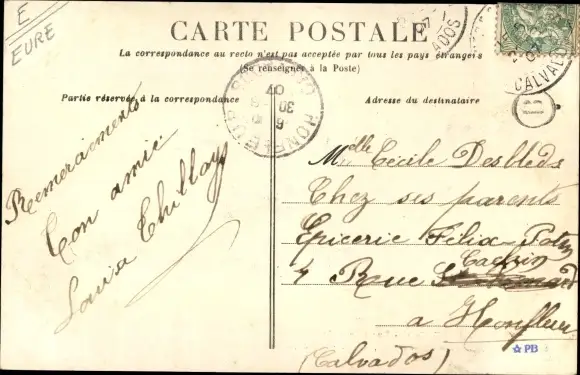 E
EURE
CARTE POSTALE
La correspondance au recto n'est pas acceptée par tous les pays étrangers
(Se renseigner à la Poste)
Partie réservée à la correspondance
Adresse du destinataire
Remerciements
Ton amie
Louisa Thillay
Melle Cécile Desbleds
Chez ses parents
Epicerie Félix-
4 Rue
a Honfleur
(Calvados)
HONFLEUR
CALVADOS
CALVADOS
B
☆ PB